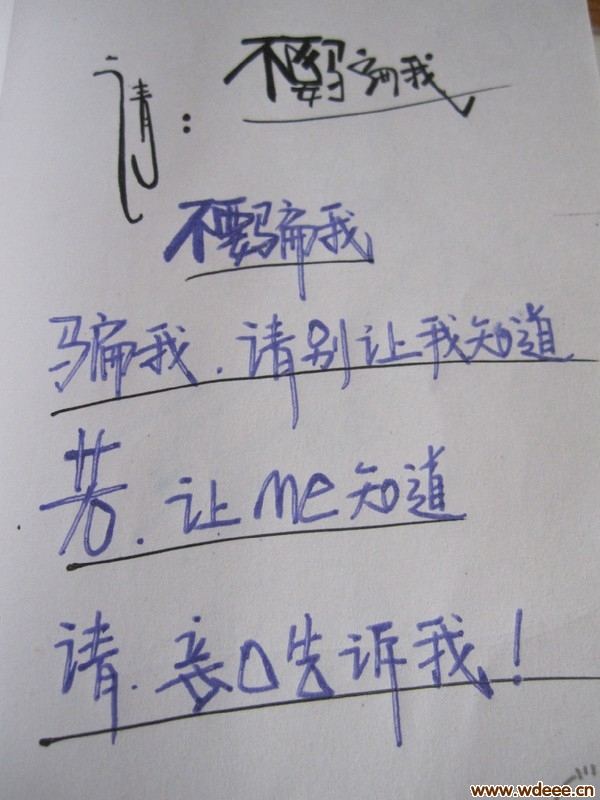 请：不要骗我
不要骗我
骗我.请别让我知道
若.让me知道
请.亲口告诉我!
www.wdeee.cn